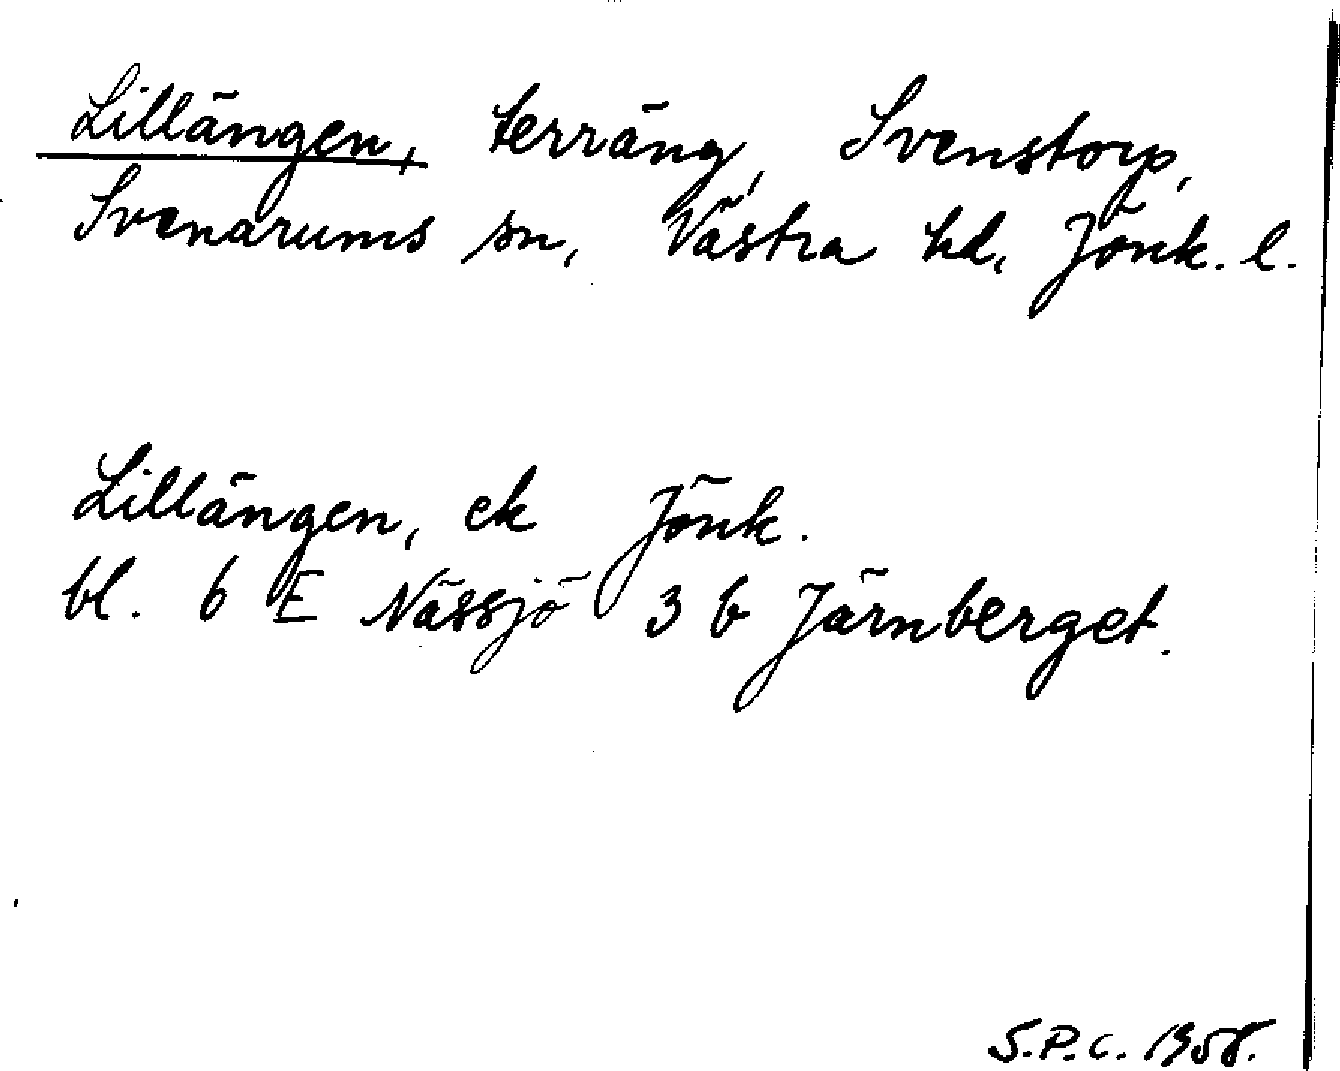 Lillängen, terräng, Svenstorp,
Svenarums sn, Västra hd, Jönk. l.
Lillängen, ek Jönk.
bl. 6 E Nässjö 3 b Järnberget.
S.P.C. 1958.